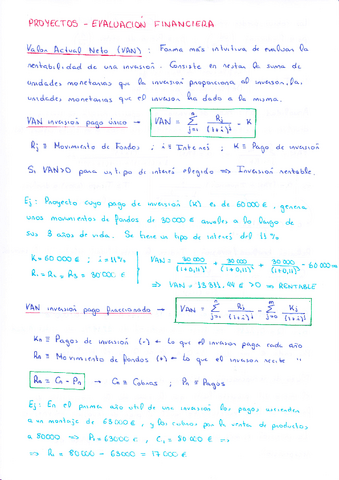 PROYECTOS - EVALUACIÓN FINANCIERA
Valor Actual Neto (VAN) : Forma más intuitiva de evaluar la
rentabilidad de una inversión. Consiste en restar la suma de
unidades monetarias que la inversión proporciona al inversor, las
unidades monetarias que el inversor ha dado a la misma.
VAN inversión pago único → VAN = Σ Rj / (1+i)^j - K
Rj ≡ Movimiento de Fondos ; i ≡ Interés ; K ≡ Pago de inversión
Si VAN>0 para un tipo de interés elegido ⇒ Inversión rentable.
Ej: Proyecto cuyo pago de inversión (K) es de 60 000 €, genera
unos movimientos de fondos de 30 000 € anuales a lo largo de
sus 3 años de vida. Se tiene un tipo de interés del 11 %
K = 60 000 € ; i = 11% VAN = 30 000 / (1+0,11) + 30 000 / (1+0,11)² + 30 000 / (1+0,11)³ - 60 000 ⇒
R₁ = R₂ = R₃ = 30 000 € ⇒ VAN = 13 311,44 € > 0 ⇒ RENTABLE
VAN inversión pago fraccionado → VAN = Σ Rj / (1+i)^j - Σ Kj / (1+i)^j
Kn ≡ Pagos de inversión (-) ← Lo que el inversor paga cada año
Rn ≡ Movimiento de fondos (+) ← Lo que el inversor recibe "
Rn = Cn - Pn → Cn ≡ Cobros ; Pn ≡ Pagos
Ej: En el primer año útil de una inversión los pagos ascienden
a un montaje de 63 000 €, y los cobros por la venta de productos
a 80000 ⇒ P₁ = 63000 €, C₁ = 80 000 € ⇒
⇒ R₁ = 80 000 - 63000 = 17 000 €